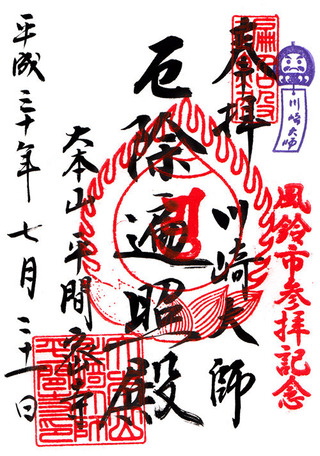 川崎大師
風鈴市参拝記念
奉拝
川崎大師
厄除遍照殿
大本山平間寺
平成三十年七月二十一日